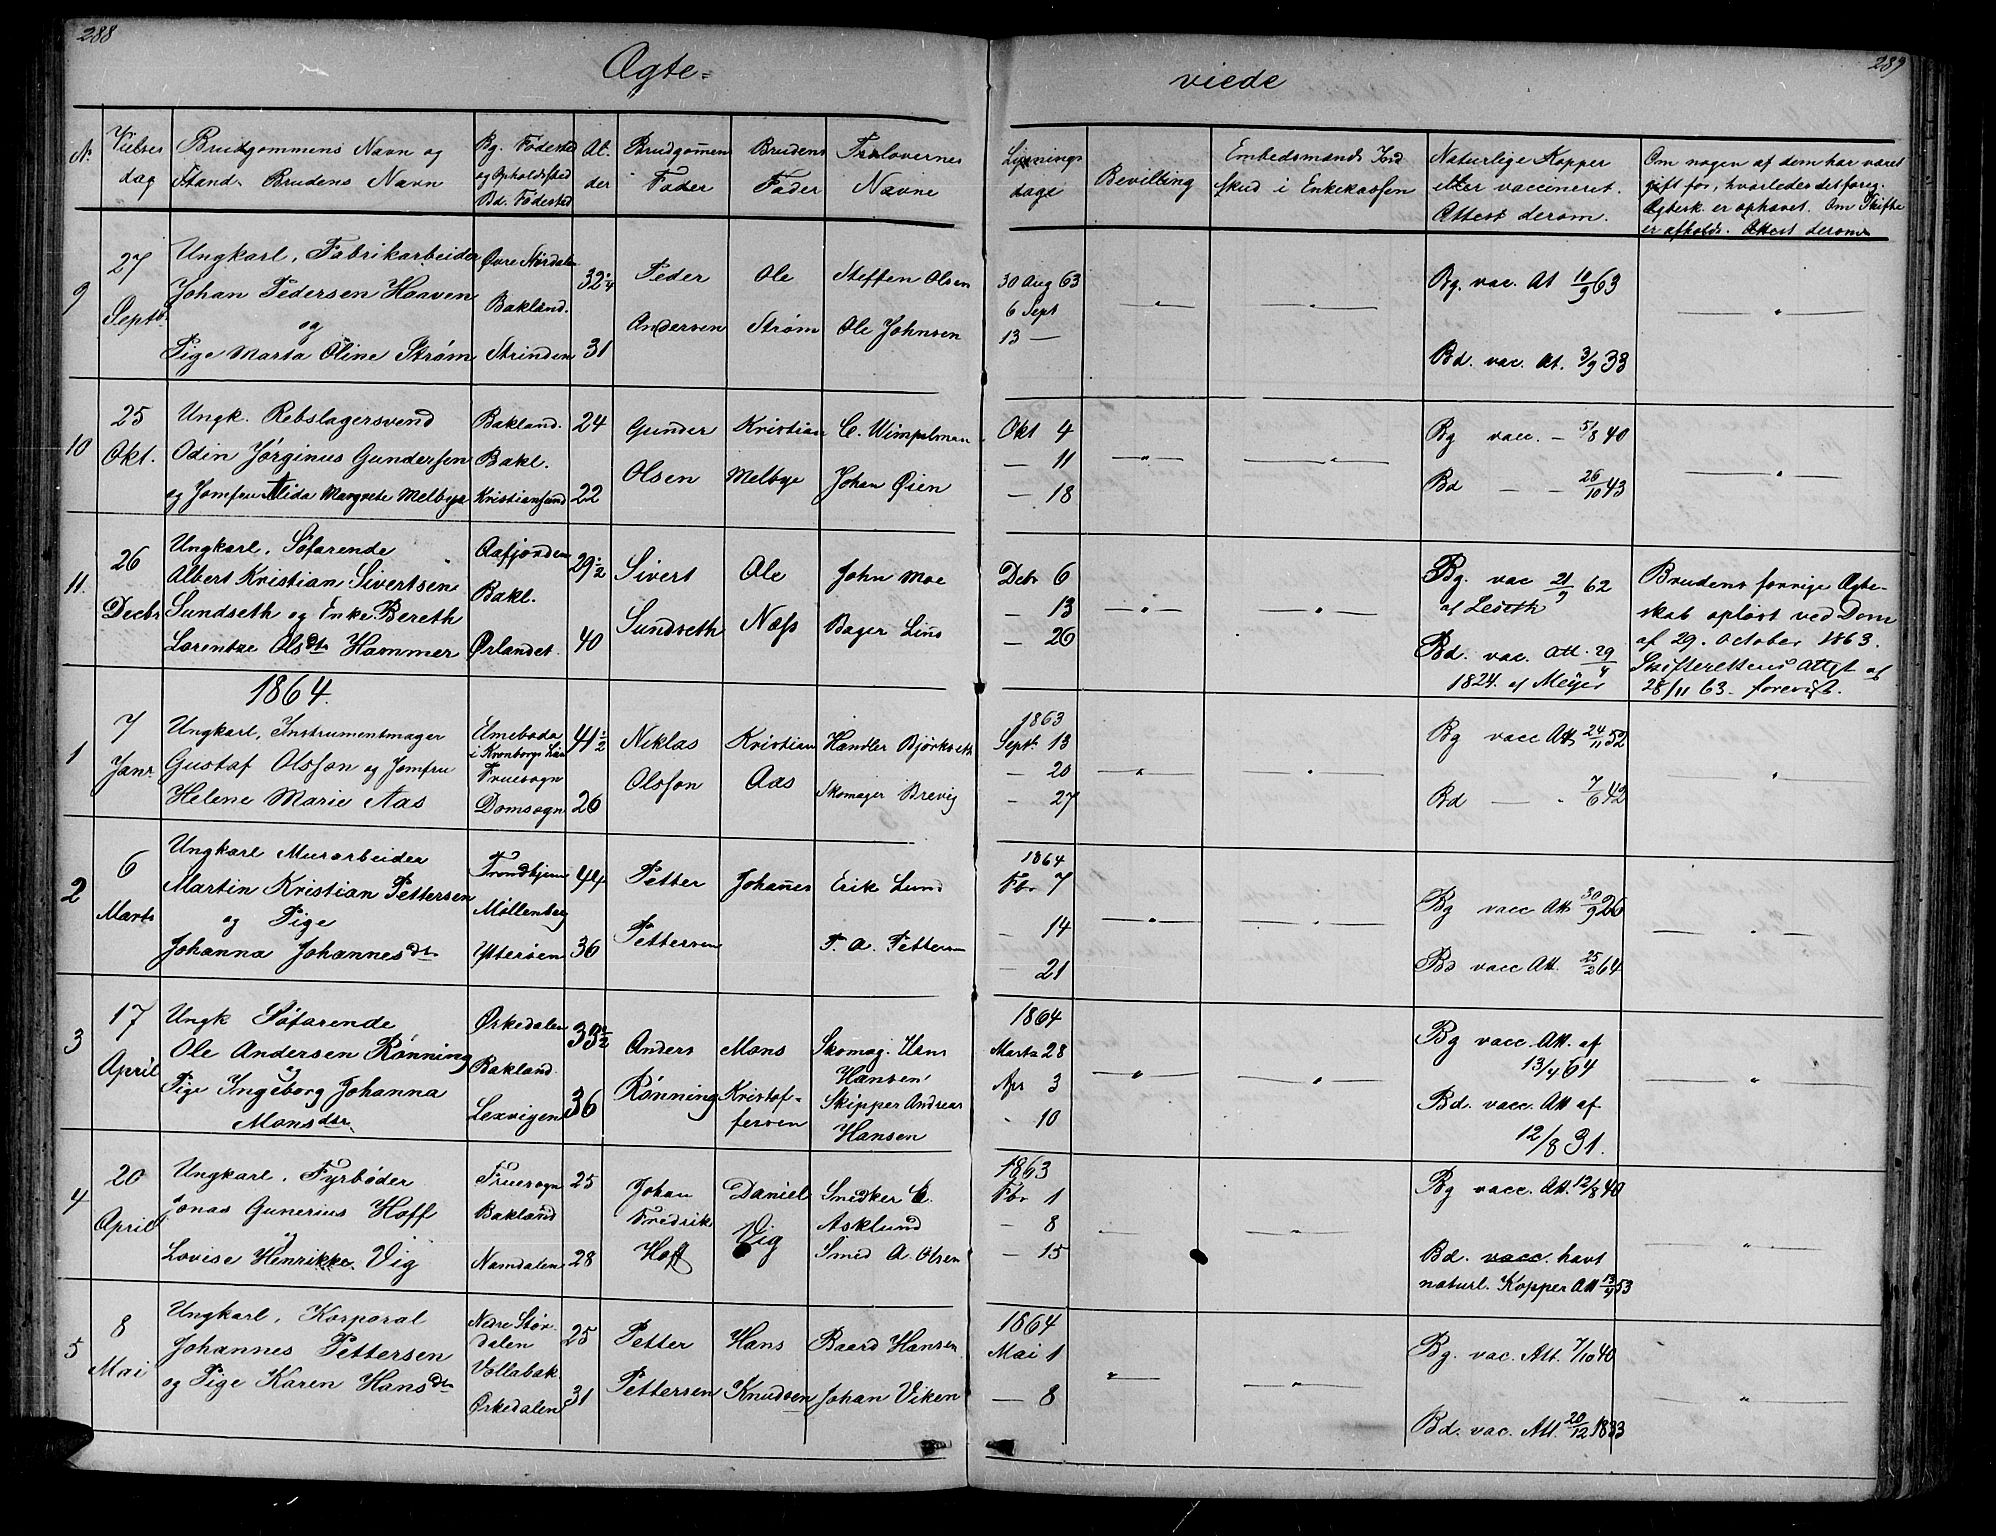 288
Ægte=
viede
289
Nr.
Vielses
dag
Brudgommens Navn og
Stand. Brudens Navn
Bg. Fødested
og Opholdssted
Bd. Fødested
Al.
der
Brudgom̅ens
Fader
Brudens
Fader
Forlovernes
Navne
Lysnings
dage
Bevilling
Embedsmænds Ind
skud i Enkekassen
Naturlige Kopper
eller vaccineret.
Attest derom.
Om nogen af dem har været
gift før, hvorledes det foreg.
Ægtesk. er ophævet. Om Skifte
er afholdt. Attest derom
9
27
Septb.
Ungkarl, Fabrikarbeider
Johan Pedersen Haaven
og
Pige Marta Oline Strøm
Bakland.
Strinden
32 1/4
31
Peder
Andersen
Ole
Strøm
Steffen Olsen
Ole Johnsen
30 Aug 63
6 Sept
13 —
Bg. vac. At 10/9 63
Bd. vac. At. 3/9 33
10
25
Okt.
Ungk. Rebslagersvend
Odin Jørginus Gundersen
og Jomfru Alida Margrete Melbye
Bakland.
Bakl.
Kristiansund
24
22
Gunder
Olsen
Kristian
Melbye
C. Wimpelman
Johan Øien
Okt 4
— 11
— 18
Bg vacc. — 5/8 40
Bd — — 26/10 43
11.
26
Decbr
Ungkarl, Søfarende
Albert Kristian Sivertsen
Sundseth og Enke Bereth
Lorentze Olsdtr Hammer
Aafjorden
Bakl.
Ørlandet
29 1/2
40
Sivert
Sundseth
Ole
Næss
John Moe
Bager Lius
Debr 6
— 13
— 20
Bg. vac 21/9 62
Bd. vac. Att. 29/4
1824. af Meyer
Brudens forrige Ægte-
skab opløst ved Dom
af 29. October 1863.
Skifterettens Attest af
28/11 63. forevist.
1864.
1
7
Janr
Ungkarl, Instrumentmager
Gustaf Olsson og Jomfru
Helene Marie Aas
Elmeboda
i Kronborgs Län
Fruesogn
Domsogn
41 1/2
26
Niklas
Olsson
Kristian
Aas
Handler Bjørkseth
Skomager Brevig
1863
Septr 13
— 20
— 27
Bg vacc Att 24/11 52
Bd — " 7/6 42
2
6
Marts
Ungkarl Murarbeider
Martin Kristian Pettersen
og Pige
Johanna Johannesdtr
Trondhjem
Møllenberg
Ytterøen
44
36
Petter
Pettersen
Johan̅es
Erik Lund
P. A. Pettersen
1864
Fbr 7
— 14
— 21
Bg vacc Att 30/9 26
Bd vacc Att. 25/2 64
3
17
April
Ungk Søfarende
Ole Andersen Rønning
og
Pige Ingeborg Johanna
Monsdtr.
Ørkedalen
Bakland
Lexvigen
33 1/2
36
Anders
Rønning
Mons
Kristof-
fersen
Skomag. Hans
Hansen
Skipper Andreas
Hansen
1864
Marts 28
Apr 3
- 10
Bg vacc. Att. af
13/4 64
Bd. vacc. Att af
12/8 31.
4
20
April
Ungkarl, Fyrbøder
Jonas Gunerius Hoff
og
Lovise Henrikke Vig
Fruesogn
Bakland
Namdalen
25
28
Johan
Fredrik
Hoff
Daniel
Vig
Smedker C.
Asklund
Smed A. Olsen
1863
Fbr 1
— 8
— 15
Bg vacc. Att. 12/8 40
Bd. vacc. havt
naturl. Kopper Att 13/9 53
5
8
Mai
Ungkarl, Korporal
Johannes Pettersen
og Pige Karen Hansdtr
Nere Stør-
dalen
Vollabak
Ørkedalen
25
31
Petter
Pettersen
Hans
Knudsen
Baard Hansen
Johan Viken
1864
Mai 1
— 8
Bg. vac. Att. 7/10 40
Bd. vac. Att. 20/12 1833